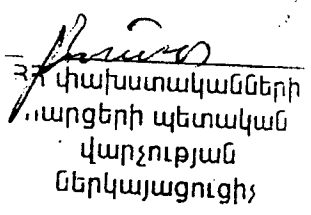 ՀՀ փախստականների
հարցերի պետական
վարչության
ներկայացուցիչ